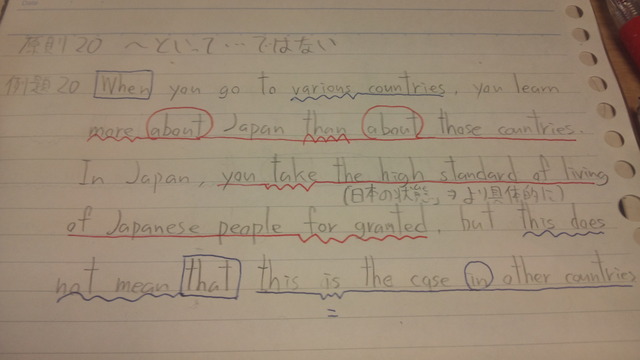 原則20 〜といって…ではない
例題20 When you go to various countries, you learn
more about Japan than about those countries.
In Japan, you take the high standard of living
(日本の状態」→より具体的に)
of Japanese people for granted, but this does
not mean that this is the case in other countries
=